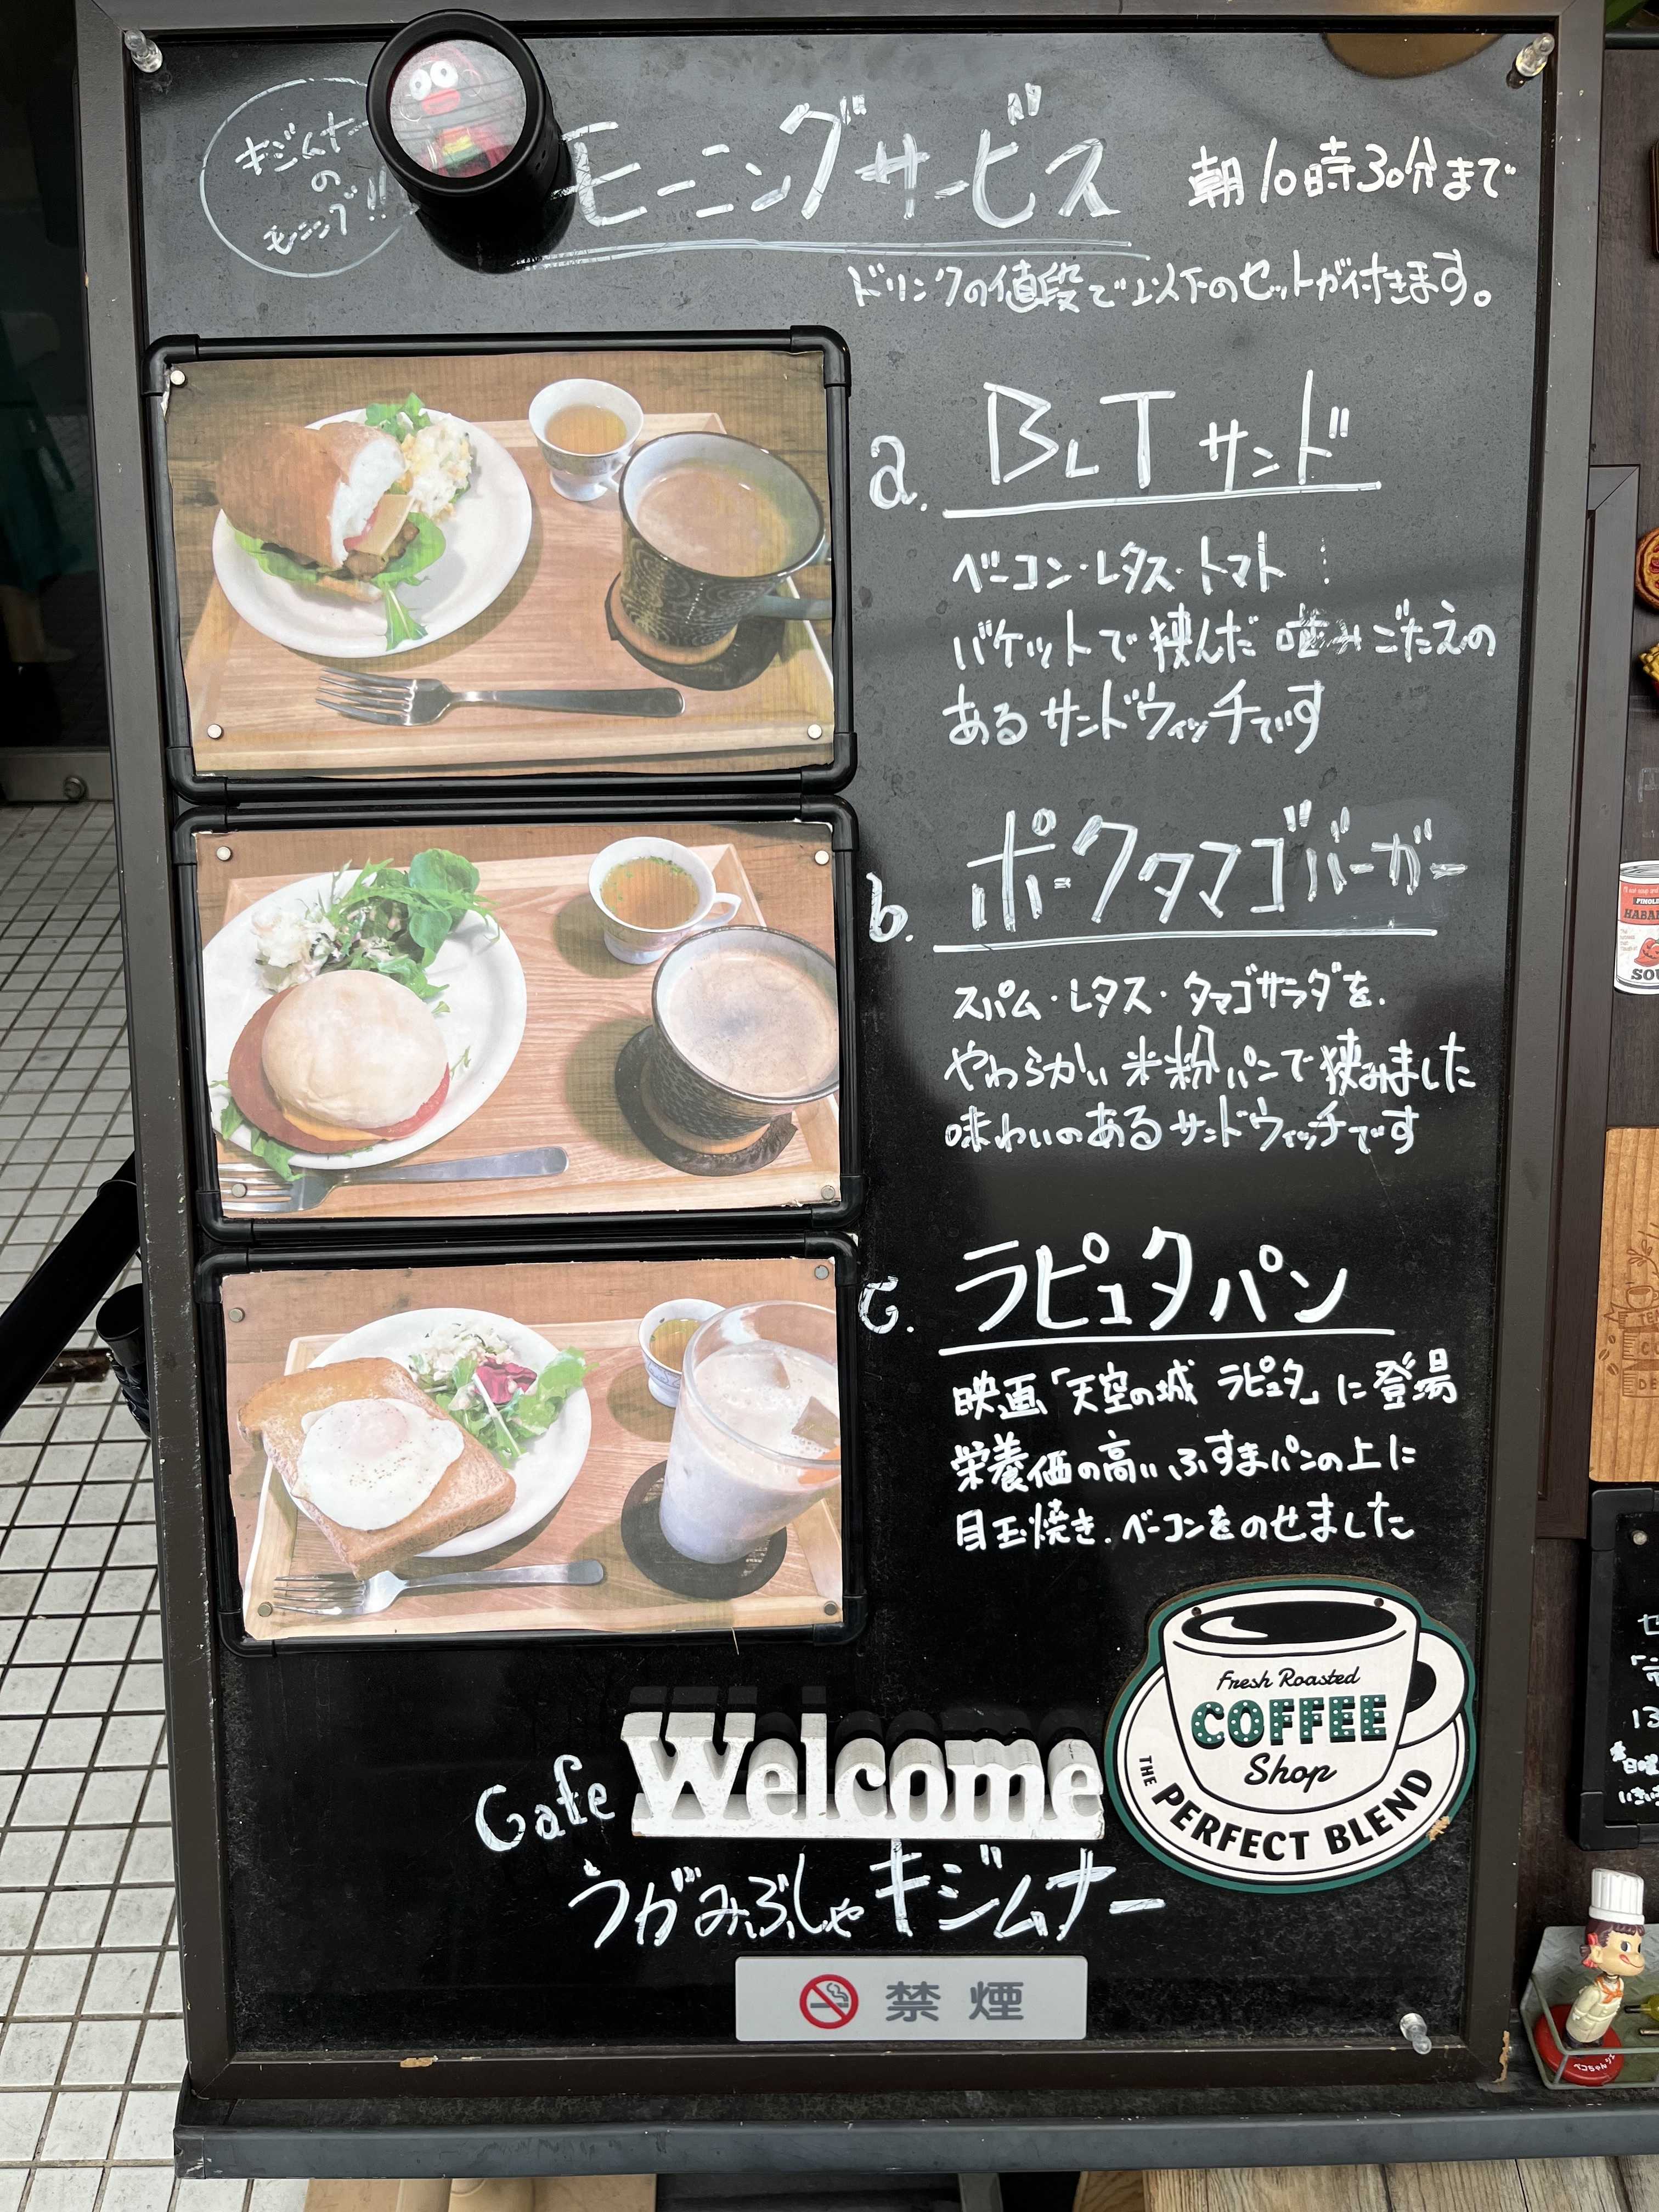 キジムナー
の
モーニング!!
モーニングサービス
朝10時30分まで
ドリンクの値段で以下のセットが付きます。
a. BLTサンド
ベーコン・レタス・トマト
バケットで挟んだ 噛みごたえの
あるサンドウィッチです
b. ポークタマゴバーガー
スパム・レタス・タマゴサラダを、
やわらかい米粉パンで挟みました
味わいのあるサンドウィッチです
c. ラピュタパン
映画「天空の城 ラピュタ」に登場
栄養価の高いふすまパンの上に
目玉焼き、ベーコンをのせました
Fresh Roasted
COFFEE
Shop
THE PERFECT BLEND
Cafe Welcome
うがみぶしゃキジムナー
禁煙
HABA
SOU
ペコちゃん